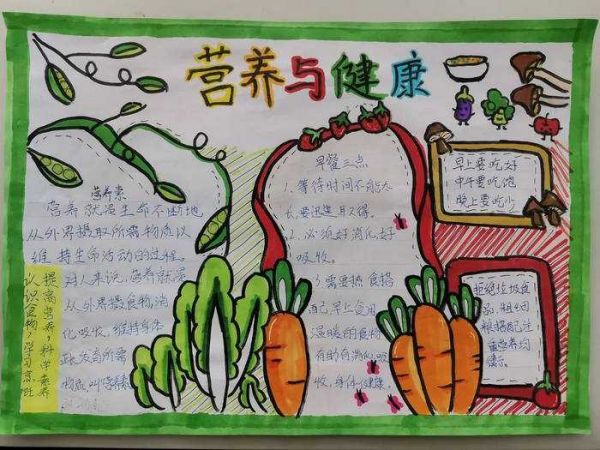 营养与健康
营养素
营养就是生命不断地
从外界摄取所需物质以
维持生命活动的过程。
对人来说,营养就是
从外界摄食物,消
化吸收,维持身体
发育所需
物质叫营养素
提漲营养,科学营养
认识食物,学习烹饪
早餐三点
1、等待时间不能太
长,要迅速且又得。
2、必须好消化,好
吸收。
3、需要热食搭
自己早上食用
温暖的食物
有助自消化,吸
收,身体健康。
早上要吃好
中午要吃饱
晚上要吃少
拒绝垃圾食
品,粗细
粮搭配注
重营养均
衡。